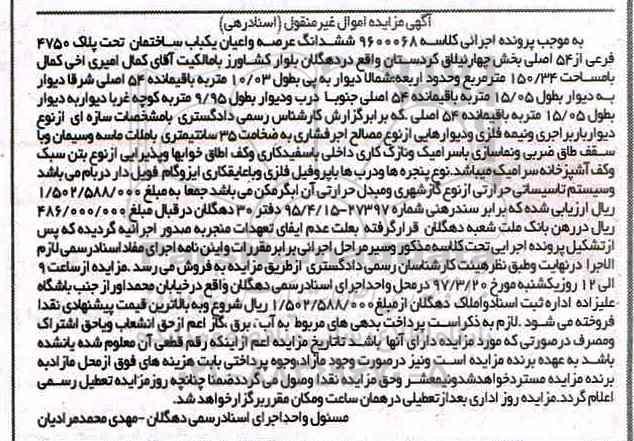 آگهی مزایده اموال غیر منقول (اسنادرهی)
به موجب پرونده اجرائی کلاسه ۹۶۰۰۰۶۸ ششدانگ عرصه واعیان یکباب ساختمان تحت پلاک ۴۷۵۰
فرعی از ۵۴ اصلی بخش چهارنیلاق کردستان واقع دردهگلان بلوار کشاورز بامالکیت آقای کمال امیری اخی کمال
بامساحت ۱۵۰/۳۴ مترمربع وحدود اربعه:شمالا دیوار به پی بطول ۱۰/۰۳ متربه باقیمانده ۵۴ اصلی شرقا دیوار
به دیوار بطول ۱۵/۰۵ متربه باقیمانده ۵۴ اصلی جنوبا درب ودیوار بطول ۹/۹۵ متربه کوچه غربا دیواربه دیوار
بطول ۱۵/۰۵ متربه باقیمانده ۵۴ اصلی .که برابرگزارش کارشناس رسمی دادگستری بامشخصات سازه ای ازنوع
دیوارباربر اجری ونیمه فلزی ودیوارهایی ازنوع مصالح اجرفشاری به ضخامت ۳۵ سانتیمتری باملات ماسه وسیمان وبا
سقف طاق ضربی ونماسازی باسرامیک ونازک کاری داخلی باسفیدکاری وکف اطاق خوابها وپذیرایی ازنوع بتن سبک
وکف آشپزخانه سرامیک میباشد.نوع پنجره ها ودرب ها باپروفیل فلزی وباعایقکاری ایزوگام فویل دار دربام می باشد
وسیستم تاسیساتی حرارتی ازنوع گازشهری ومبدل حرارتی آن ابگرمکن می باشد جمعا به مبلغ ۱/۵۰۲/۵۸۸/۰۰۰
ریال ارزیابی شده که برابر سندرهنی شماره ۲۷۳۹۷-۹۵/۴/۱۵ دفتر ۳۰ دهگلان در قبال مبلغ ۴۸۶/۰۰۰/۰۰۰
ریال دررهن بانک ملت شعبه دهگلان قرارگرفته بعلت عدم ایفای تعهدات منجربه صدور اجرائیه گردیده که پس
ازتشکیل پرونده اجرایی تحت کلاسه مذکور وسیر مراحل اجرائی برابر مقررات واین نامه اجرای مفاد اسنادرسمی لازم
الاجرا درنهایت وطبق نظرهیئت کارشناسان رسمی دادگستری ازطریق مزایده به فروش می رسد .مزایده ازساعت ۹
الی ۱۲ روزیکشنبه مورخ ۹۷/۳/۲۰ درمحل واحد اجرای اسنادرسمی دهگلان واقع درخیابان محمداوراز جنب باشگاه
علیزاده اداره ثبت اسنادواملاک دهگلان از مبلغ ۱/۵۰۲/۵۸۸/۰۰۰ ریال شروع وبه بالاترین قیمت پیشنهادی نقدا
فروخته می شود .لازم به ذکراست پرداخت بدهی های مربوط به آب ، برق ،گاز اعم ازحق انشعاب وياحق اشتراک
ومصرف درصورتی که مورد مزایده دارای آنها باشد تاتاریخ مزایده اعم ازاینکه رقم قطعی آن معلوم شده یانشده
باشد به عهده برنده مزایده است ونیز درصورت وجود مازاد،وجوه پرداختی بابت هزینه های فوق ازمحل مازادبه
برنده مزایده مستردخواهدشدونیمعشر وحق مزایده نقدا وصول می گرددضمنا چنانچه روزمزایده تعطیل رسمی
اعلام گردد.مزایده روز اداری بعدازتعطیلی درهمان ساعت ومکان مقرربرگزارخواهد شد.
مسئول واحداجرای اسنادرسمی دهگلان -مهدی محمدمرادیان